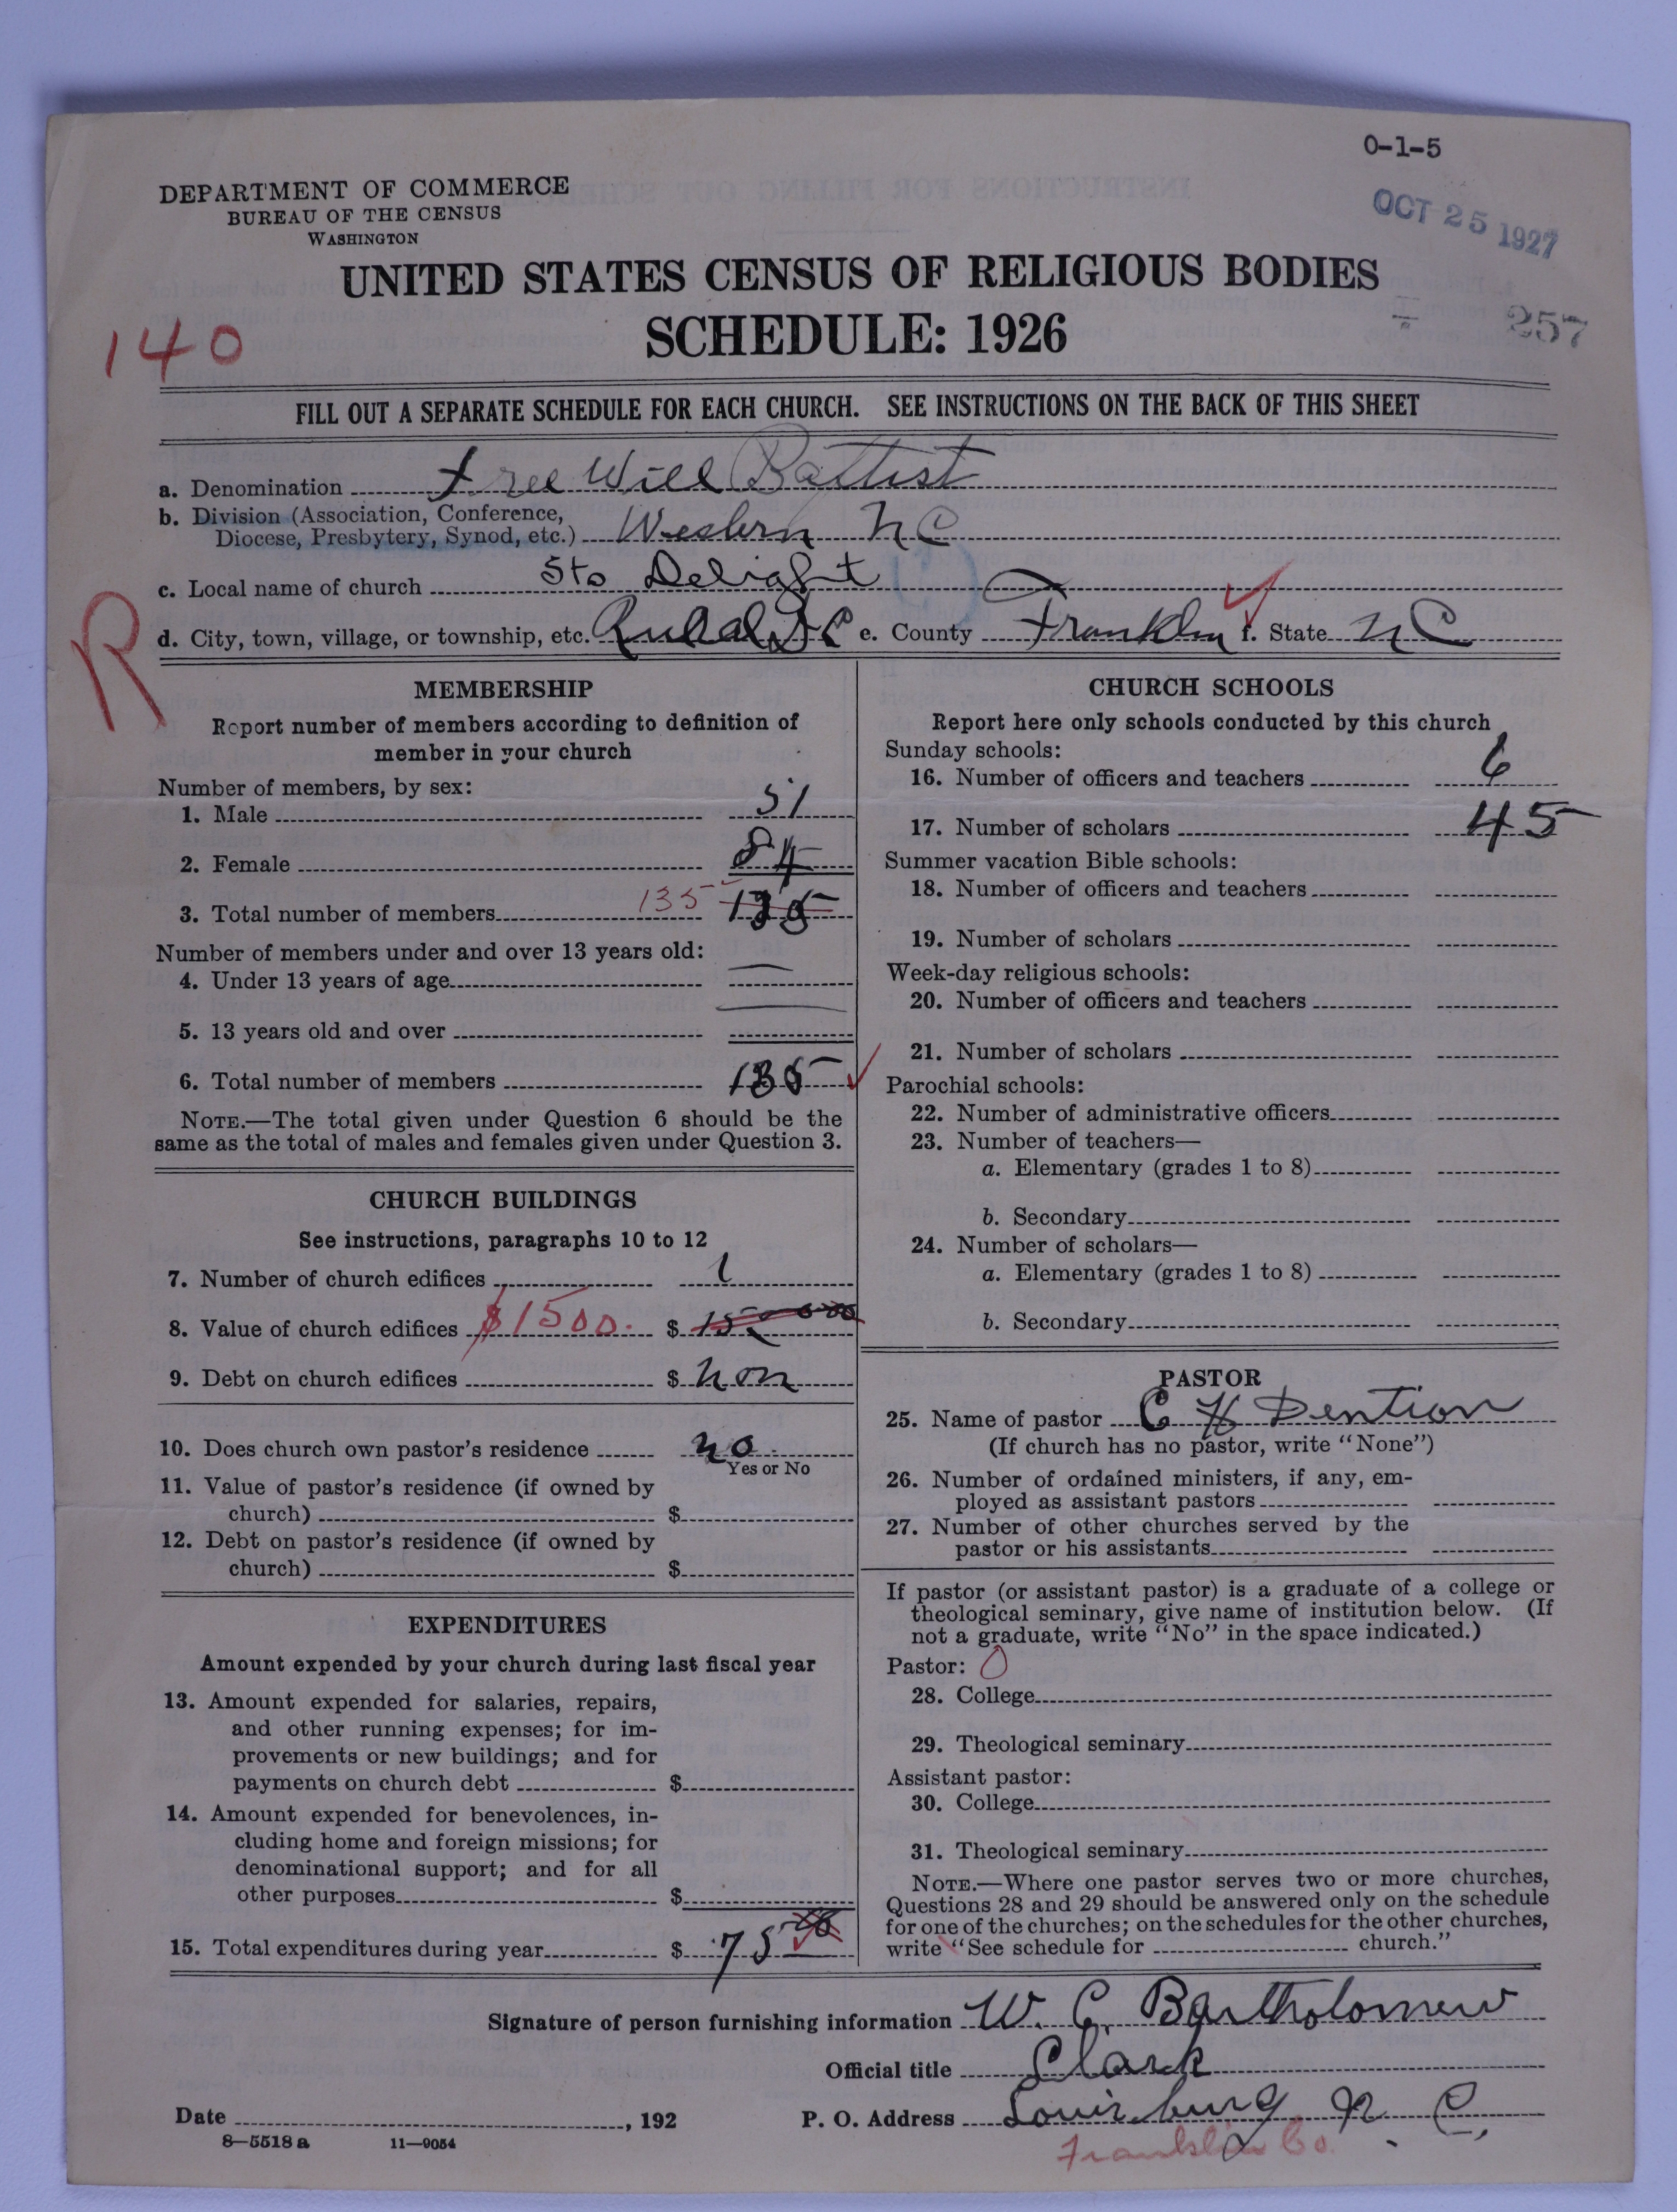 O-1-5
OCT 25 1927
DEPARTMENT OF COMMERCE
BUREAU OF THE CENSUS
WASHINGTON
UNITED STATES CENSUS OF RELIGIOUS BODIES
SCHEDULE: 1926
257
140
FILL OUT A SEPARATE SCHEDULE FOR EACH CHURCH. SEE INSTRUCTIONS ON THE BACK OF THIS SHEET
a. Denomination Free Will Battist
b. Division (Association, Conference,
Diocese, Presbytery, Synod, etc.) Western NC
c. Local name of church Sto Delight
R
d. City, town, village, or township, etc. Rural e. County Franklin f. State NC
MEMBERSHIP
Report number of members according to definition of
member in your church
Number of members, by sex:
1. Male 51
2. Female 84
3. Total number of members 135 135
Number of members under and over 13 years old:
4. Under 13 years of age —
5. 13 years old and over —
6. Total number of members 135
NOTE.—The total given under Question 6 should be the
same as the total of males and females given under Question 3.
CHURCH BUILDINGS
See instructions, paragraphs 10 to 12
7. Number of church edifices 1
8. Value of church edifices $1500. $
9. Debt on church edifices $ non
10. Does church own pastor's residence no
Yes or No
11. Value of pastor's residence (if owned by
church) $
12. Debt on pastor's residence (if owned by
church) $
EXPENDITURES
Amount expended by your church during last fiscal year
13. Amount expended for salaries, repairs,
and other running expenses; for im-
provements or new buildings; and for
payments on church debt $
14. Amount expended for benevolences, in-
cluding home and foreign missions; for
denominational support; and for all
other purposes $
15. Total expenditures during year $ 75
CHURCH SCHOOLS
Report here only schools conducted by this church
Sunday schools:
16. Number of officers and teachers 6
17. Number of scholars 45
Summer vacation Bible schools:
18. Number of officers and teachers
19. Number of scholars
Week-day religious schools:
20. Number of officers and teachers
21. Number of scholars
Parochial schools:
22. Number of administrative officers
23. Number of teachers—
a. Elementary (grades 1 to 8)
b. Secondary
24. Number of scholars—
a. Elementary (grades 1 to 8)
b. Secondary
PASTOR
25. Name of pastor C H Dention
(If church has no pastor, write "None")
26. Number of ordained ministers, if any, em-
ployed as assistant pastors
27. Number of other churches served by the
pastor or his assistants
If pastor (or assistant pastor) is a graduate of a college or
theological seminary, give name of institution below. (If
not a graduate, write "No" in the space indicated.)
Pastor: 0
28. College
29. Theological seminary
Assistant pastor:
30. College
31. Theological seminary
NOTE.—Where one pastor serves two or more churches,
Questions 28 and 29 should be answered only on the schedule
for one of the churches; on the schedules for the other churches,
write "See schedule for church."
Signature of person furnishing information W. C. Bartholomew
Official title Clark
Date , 192 P. O. Address Louisburg N. C.
8—5518 a 11—9054
Franklin Co.